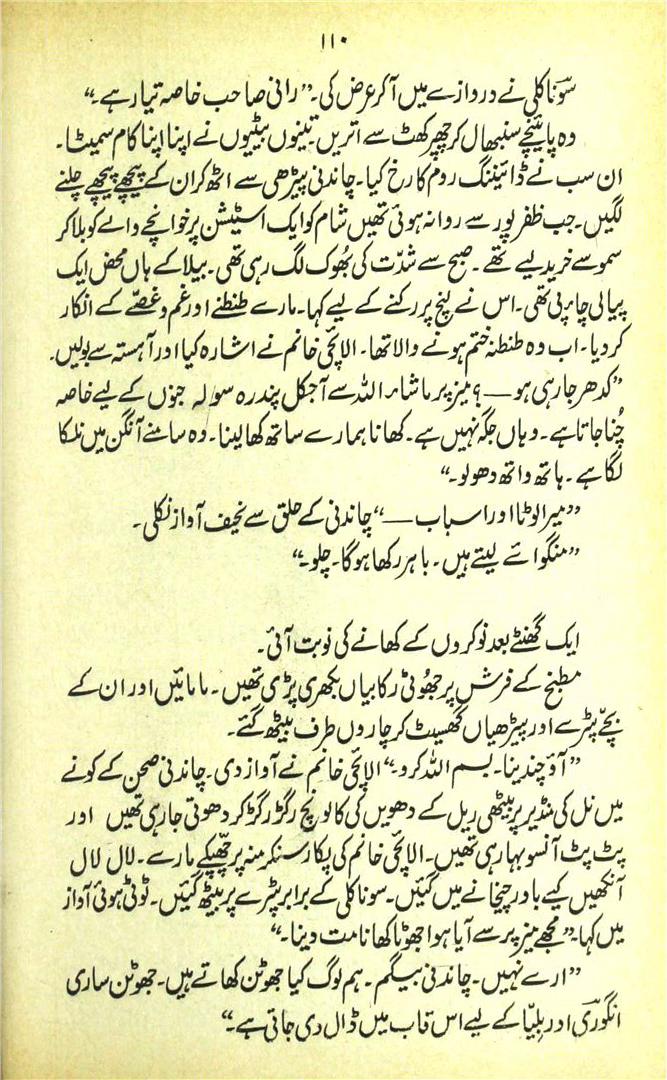 ۱۱۰
سوناکلی نے دروازے میں آکر عرض کی۔ ”رانی صاحب خاصہ تیار ہے۔“
وہ پائینچے سنبھال کر چھپر کھٹ سے اتریں۔ تینوں بیٹیوں نے اپنا اپنا کام سمیٹا۔
ان سب نے ڈائیننگ روم کا رخ کیا۔ چاندنی پیڑھی سے اٹھ کر ان کے پیچھے پیچھے چلنے
لگیں۔ جب ظفر پور سے روانہ ہوئی تھیں شام کو ایک اسٹیشن پر خوانچے والے کو بلا کر
سموسے خریدے تھے۔ صبح سے شدّت کی بھُوک لگ رہی تھی۔ بیلا کے ہاں محض ایک
پیالی چاء پی تھی۔ اس نے لنچ پر رکنے کے لیے کہا۔ مارے طنطنے اور غم و غصّے کے انکار
کر دیا۔ اب وہ طنطنہ ختم ہونے والا تھا۔ الائچی خانم نے اشارہ کیا اور آہستہ سے بولیں۔
”کدھر جا رہی ہو — ؟ میز پر ماشاء اللہ سے آجکل پندرہ سولہ جنوں کے لیے خاصہ
چُنا جاتا ہے۔ وہاں جگہ نہیں ہے۔ کھانا ہمارے ساتھ کھا لینا۔ وہ سامنے آنگن میں نلکا
لگا ہے۔ ہاتھ واتھ دھو لو۔“
”میرا لوٹا اور اسباب —“ چاندنی کے حلق سے نحیف آواز نکلی۔
”منگوائے لیتے ہیں۔ باہر رکھا ہوگا۔ چلو۔“
ایک گھنٹے بعد نوکروں کے کھانے کی نوبت آئی۔
مطبخ کے فرش پر جھُوٹی رکابیاں بکھری پڑی تھیں۔ مامائیں اور ان کے
بچّے پٹرے اور پیڑھیاں گھسیٹ کر چاروں طرف بیٹھ گئے۔
”آؤ چندینا۔ بسم اللہ کرو۔“ الائچی خانم نے آواز دی۔ چاندنی صحن کے کونے
میں نل کی منڈیر پر بیٹھی ریل کے دھویں کی کالونچ رگڑ رگڑ کر دھوتی جا رہی تھیں اور
پٹ پٹ آنسو بہا رہی تھیں۔ الائچی خانم کی پکار سنکر منہ پر چھپکے مارے۔ لال لال
آنکھیں کیے باورچیخانے میں گئیں۔ سوناکلی کے برابر پٹرے پر بیٹھ گئیں۔ ٹوٹی ہوئی آواز
میں کہا۔ ”مجھے میز پر سے آیا ہوا جھوٹا کھانا مت دینا۔“
”ارے نہیں۔ چاندنی بیگم۔ ہم لوگ کیا جھوٹن کھاتے ہیں۔ جھوٹن ساری
انگوری اور بلیّا کے لیے اس قاب میں ڈال دی جاتی ہے۔“